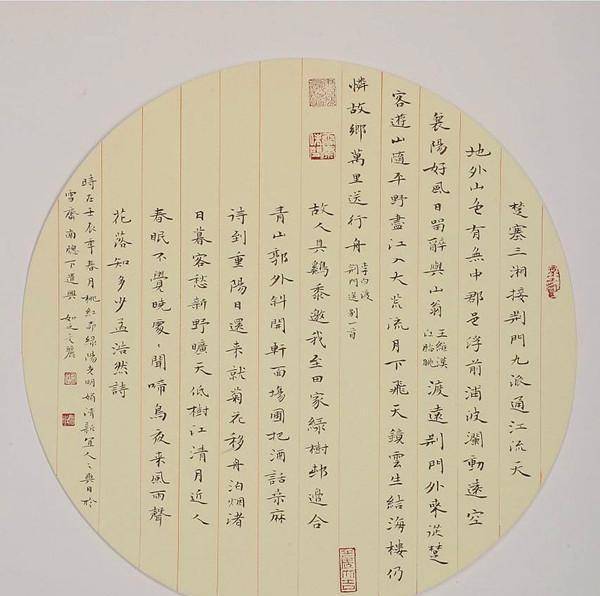 楚塞三湘接荆門九派通江流天
地外山色有無中郡邑浮前浦波瀾動遠空
襄陽好風日留醉與山翁 王維漢
江臨眺 渡遠荆門外來從楚
客遊山隨平野盡江入大荒流月下飛天鏡雲生結海樓仍
憐故鄉萬里送行舟 李白渡
荆門送别一首
故人具鷄黍邀我至田家綠樹邨邊合
青山郭外斜開軒面場圃把酒話桑麻
待到重陽日還來就菊花移舟泊烟渚
日暮客愁新野曠天低樹江清月近人
春眠不覺曉處聞啼鳥夜來風雨聲
花落知多少孟浩然詩
時在壬辰年春月桃紅柳綠陽光明媚清新宜人
雪齋南牕下遣興